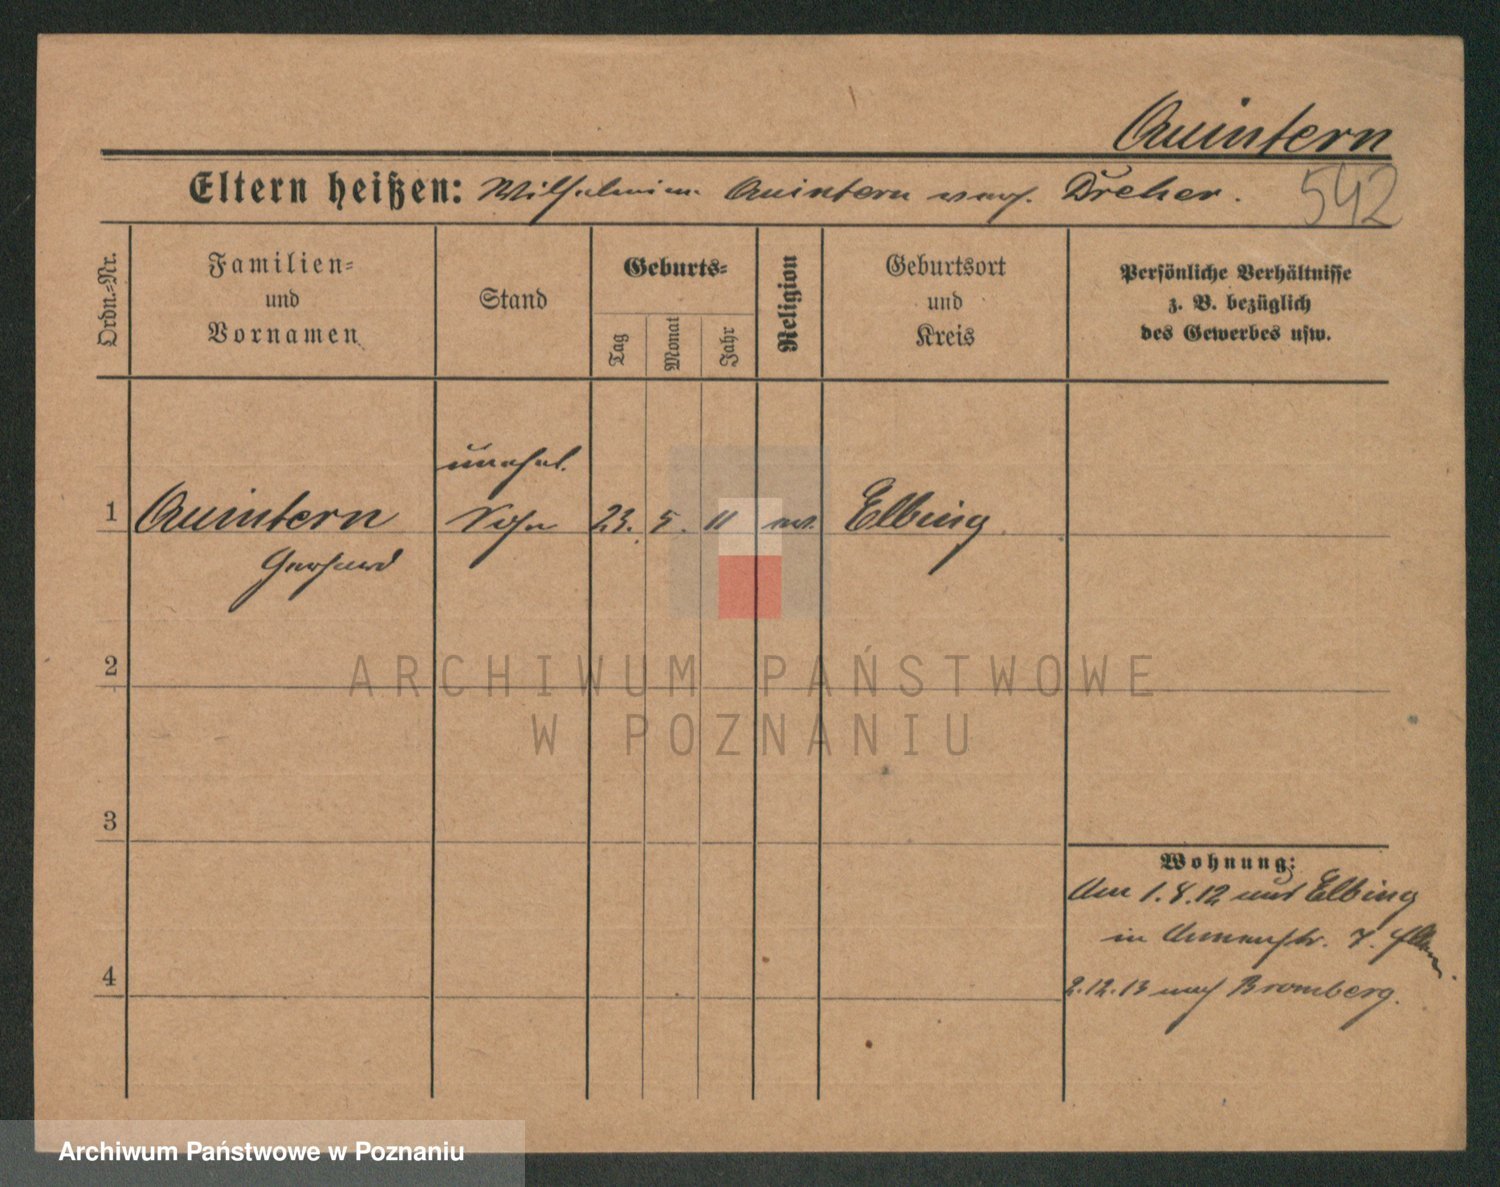 Quintern
Eltern heißen: Wilhelmine Quintern verh. Dreher.
542
Ordn.-Nr.
Familien-
und
Vornamen
Stand
Geburts-
Tag
Monat
Jahr
Religion
Geburtsort
und
Kreis
Persönliche Verhältnisse
z. B. bezüglich
des Gewerbes usw.
unehel.
1 Quintern Sohn 23. 5. 11 Elbing
Gerhard
ARCHIWUM PAŃSTWOWE
2
W POZNANIU
3
Wohnung:
1.8.12 Elbing
in 7.
4
2.12.13 nach Bromberg.
Archiwum Państwowe w Poznaniu